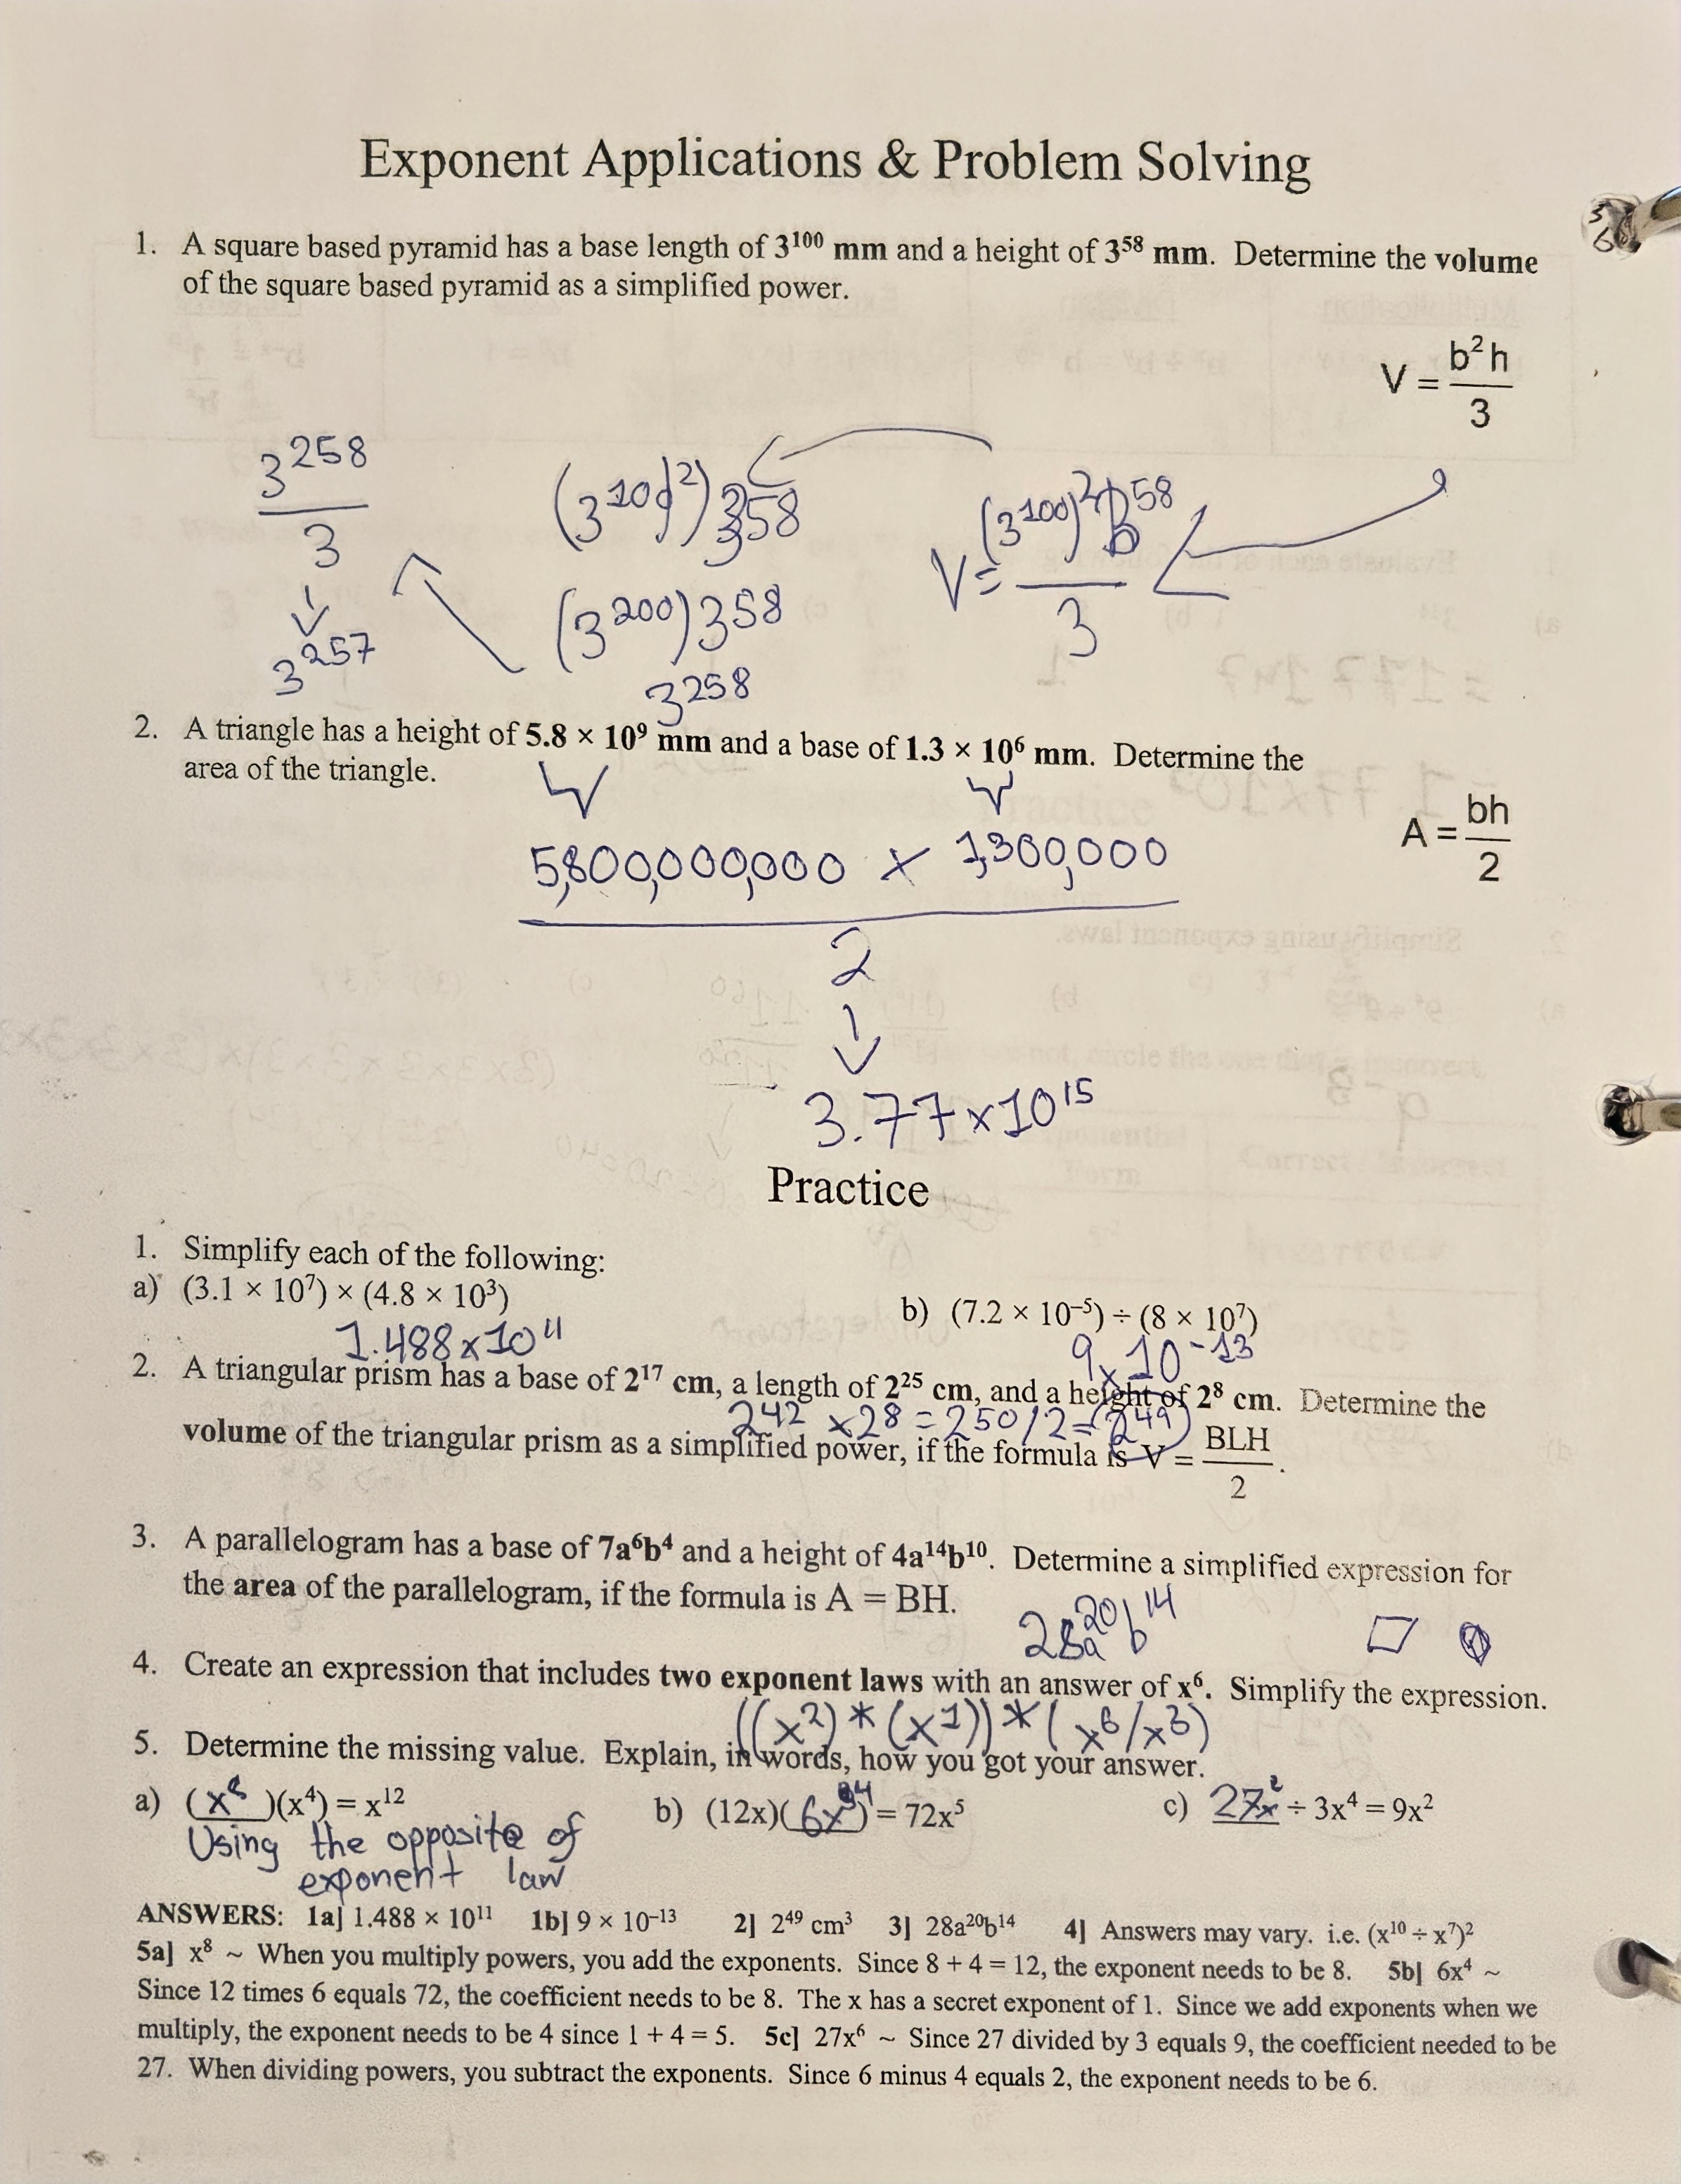 Exponent Applications & Problem Solving
1. A square based pyramid has a base length of 3¹⁰⁰ mm and a height of 3⁵⁸ mm. Determine the volume
of the square based pyramid as a simplified power.
V = b²h / 3
V = (3¹⁰⁰)² 3⁵⁸ / 3
(3¹⁰⁰)²) 3⁵⁸
(3²⁰⁰) 3⁵⁸
3²⁵⁸
3²⁵⁸ / 3
3²⁵⁷
2. A triangle has a height of 5.8 × 10⁹ mm and a base of 1.3 × 10⁶ mm. Determine the
area of the triangle.
A = bh / 2
5,800,000,000 × 1,300,000
2
3.77×10¹⁵
Practice
1. Simplify each of the following:
a) (3.1 × 10⁷) × (4.8 × 10³)
b) (7.2 × 10⁻⁵) ÷ (8 × 10⁷)
1.488×10¹¹
9×10⁻¹³
2. A triangular prism has a base of 2¹⁷ cm, a length of 2²⁵ cm, and a height of 2⁸ cm. Determine the
2⁴² ×2⁸ = 2⁵⁰/2 = (2⁴⁹)
volume of the triangular prism as a simplified power, if the formula is V = BLH / 2.
3. A parallelogram has a base of 7a⁶b⁴ and a height of 4a¹⁴b¹⁰. Determine a simplified expression for
the area of the parallelogram, if the formula is A = BH.
28a²⁰b¹⁴
4. Create an expression that includes two exponent laws with an answer of x⁶. Simplify the expression.
((x²) * (x¹)) * (x⁶/x³)
5. Determine the missing value. Explain, in words, how you got your answer.
a) (x⁸)(x⁴) = x¹²
b) (12x)(6x⁴) = 72x⁵
c) 27x² ÷ 3x⁴ = 9x²
Using the opposite of
exponent law
ANSWERS: 1a] 1.488 × 10¹¹ 1b] 9 × 10⁻¹³ 2] 2⁴⁹ cm³ 3] 28a²⁰b¹⁴ 4] Answers may vary. i.e. (x¹⁰ ÷ x⁷)²
5a] x⁸ ~ When you multiply powers, you add the exponents. Since 8 + 4 = 12, the exponent needs to be 8. 5b] 6x⁴ ~
Since 12 times 6 equals 72, the coefficient needs to be 8. The x has a secret exponent of 1. Since we add exponents when we
multiply, the exponent needs to be 4 since 1 + 4 = 5. 5c] 27x⁶ ~ Since 27 divided by 3 equals 9, the coefficient needed to be
27. When dividing powers, you subtract the exponents. Since 6 minus 4 equals 2, the exponent needs to be 6.